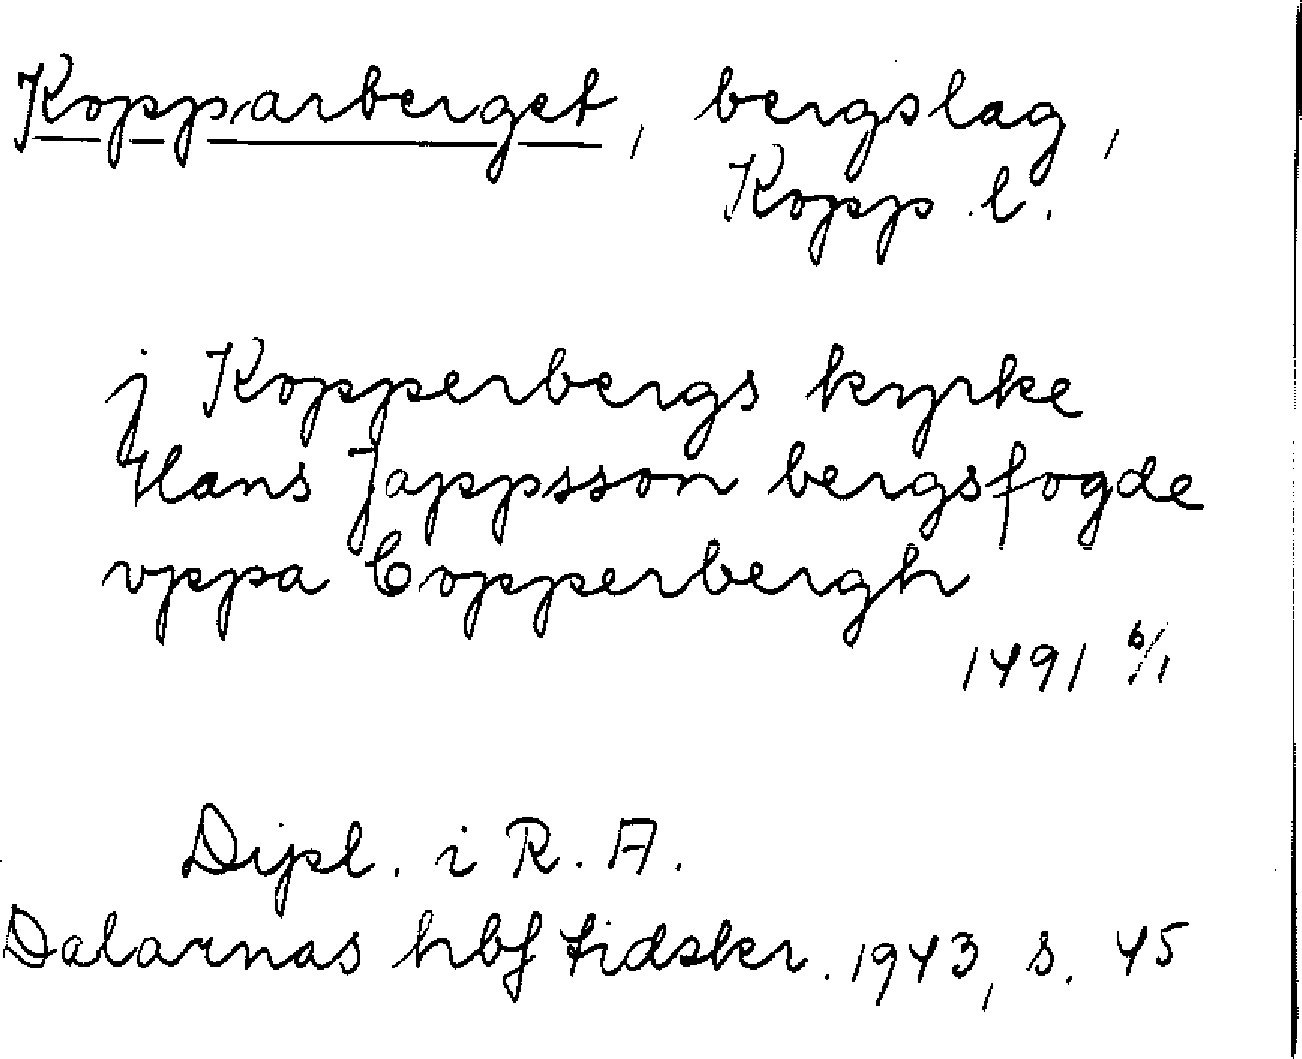 Kopparberget, bergslag,
Kopp. l.
j Kopperbergs kyrke
Hans Jappsson bergsfogde
vppa Copperbergh
1491 6/1
Dipl. i R. A.
Dalarnas hbf tidskr. 1943, s. 45